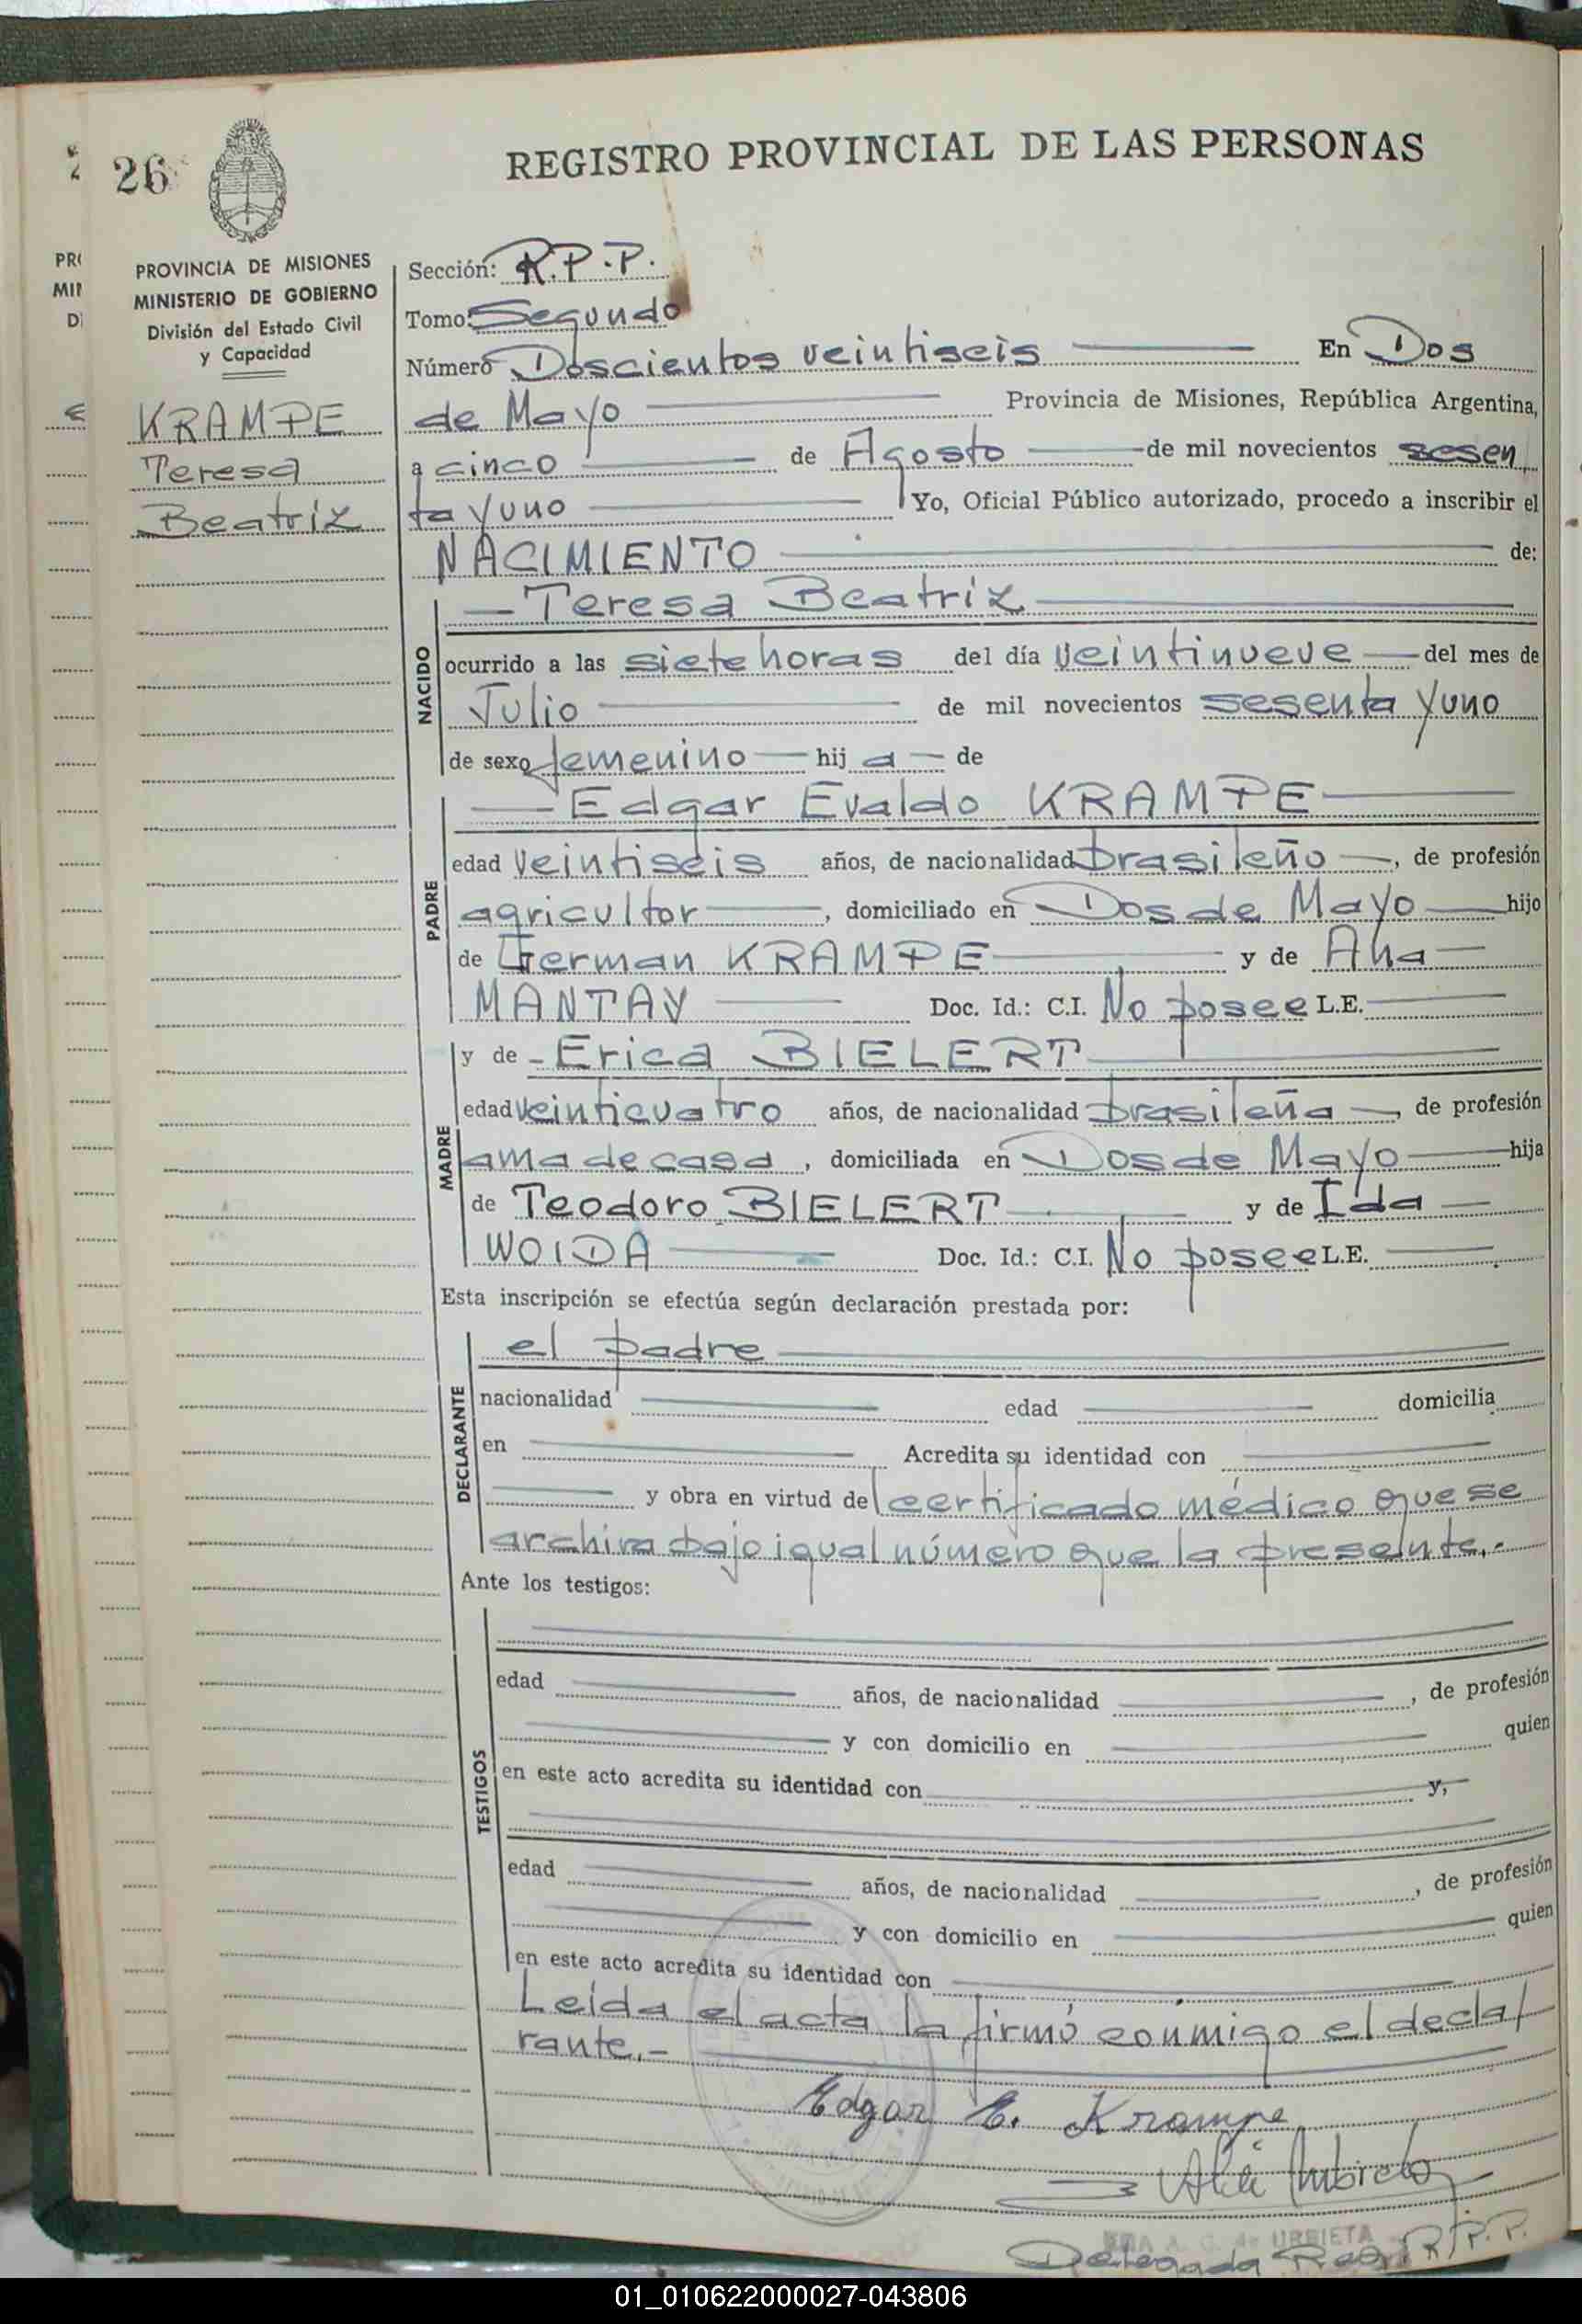 26
REGISTRO PROVINCIAL DE LAS PERSONAS
PROVINCIA DE MISIONES
MINISTERIO DE GOBIERNO
División del Estado Civil
y Capacidad
KRAMPE
Teresa
Beatriz
Sección: R.P.P.
Tomo: Segundo
Número Doscientos veintiseis En Dos
de Mayo Provincia de Misiones, República Argentina,
a cinco de Agosto de mil novecientos sesen
ta y uno Yo, Oficial Público autorizado, procedo a inscribir el
NACIMIENTO de:
NACIDO
Teresa Beatriz
ocurrido a las siete horas del día veintinueve del mes de
Julio de mil novecientos sesenta y uno
de sexo femenino hij a de
PADRE
Edgar Evaldo KRAMPE
edad veintiseis años, de nacionalidad brasileño, de profesión
agricultor, domiciliado en Dos de Mayo hijo
de German KRAMPE y de Ana
MANTAY Doc. Id.: C.I. No posee L.E.
MADRE
y de Erica BIELERT
edad veinticuatro años, de nacionalidad brasileña, de profesión
ama de casa, domiciliada en Dos de Mayo hija
de Teodoro BIELERT y de Ida
WOIDA Doc. Id.: C.I. No posee L.E.
Esta inscripción se efectúa según declaración prestada por:
DECLARANTE
el padre
nacionalidad edad domicilia
en Acredita su identidad con
y obra en virtud del certificado médico que se
archiva bajo igual número que la presente.-
Ante los testigos:
TESTIGOS
edad años, de nacionalidad , de profesión
y con domicilio en quien
en este acto acredita su identidad con y,
edad años, de nacionalidad , de profesión
y con domicilio en quien
en este acto acredita su identidad con
Leída el acta la firmó conmigo el decla/
rante.-
Edgar E. Krampe
de URBIETA
Delegada Reg. R.P.P.
01_010622000027-043806